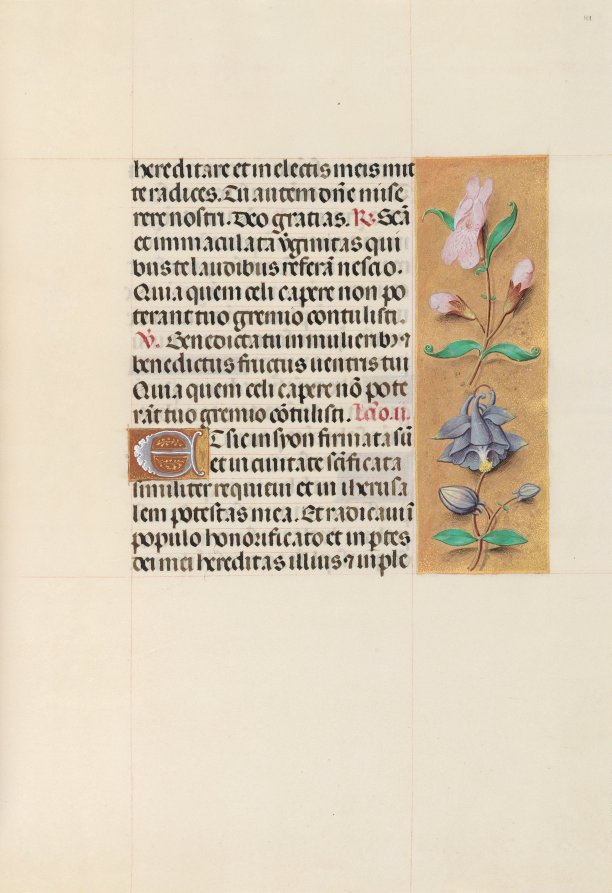 hereditare et in electis meis mit
te radices. Tu autem dñe mise
rere nostri. Deo gratias. R. Scã
et immaculata v̾ginitas qui
bus te laudibus referã nescio.
Quia quem celi capere non po
terant tuo gremio contulisti.
V. Benedicta tu in mulierib⁊ ⁊
benedictus fructus uentris tui
Quia quem celi capere nõ pote
rãt tuo gremio cõtulisti. Lcõ.ii.
Et sic in syon firmata sũ
et in ciuitate sc̃ificata
similiter requieui et in iherusa
lem potestas mea. Et radicaui ĩ
populo honorificato et in p̱tes
dei mei hereditas illius ⁊ in ple